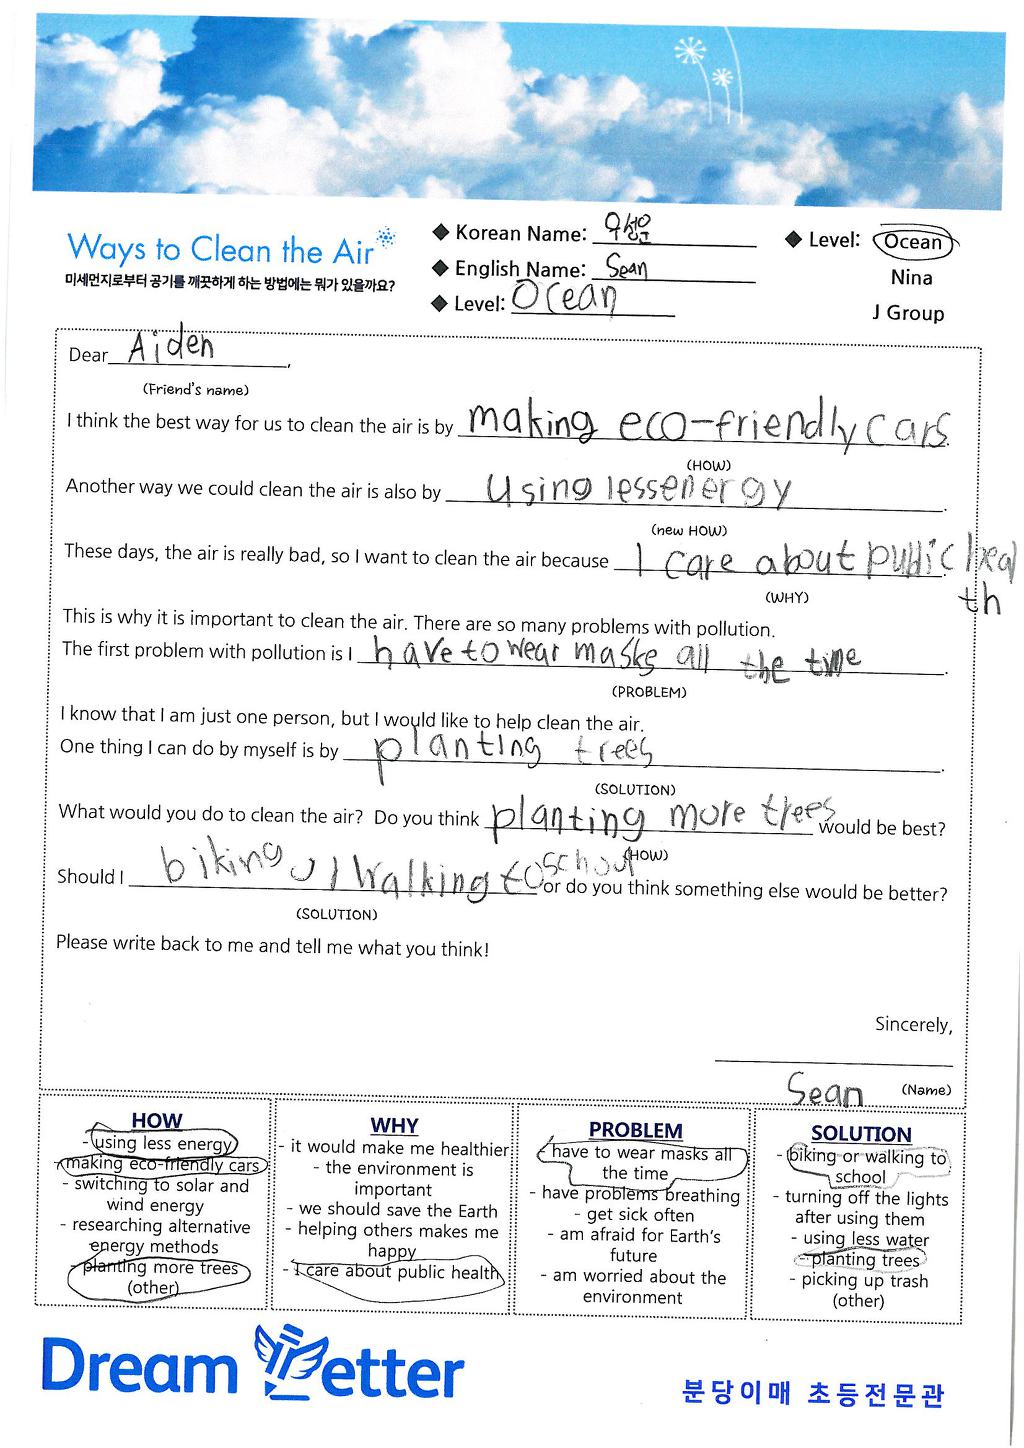 Ways to Clean the Air
미세먼지로부터 공기를 깨끗하게 하는 방법에는 뭐가 있을까요?
◆ Korean Name: 우성윤
◆ English Name: Sean
◆ Level: Ocean
◆ Level: Ocean
Nina
J Group
Dear Aiden,
(Friend's name)
I think the best way for us to clean the air is by making eco-friendly cars.
(HOW)
Another way we could clean the air is also by using less energy.
(new HOW)
These days, the air is really bad, so I want to clean the air because I care about public heal
th
(WHY)
This is why it is important to clean the air. There are so many problems with pollution.
The first problem with pollution is I have to wear masks all the time.
(PROBLEM)
I know that I am just one person, but I would like to help clean the air.
One thing I can do by myself is by planting trees.
(SOLUTION)
What would you do to clean the air? Do you think planting more trees would be best?
(HOW)
Should I biking or walking to school or do you think something else would be better?
(SOLUTION)
Please write back to me and tell me what you think!
Sincerely,
Sean (Name)
HOW
- using less energy
- making eco-friendly cars
- switching to solar and
wind energy
- researching alternative
energy methods
- planting more trees
(other)
WHY
- it would make me healthier
- the environment is
important
- we should save the Earth
- helping others makes me
happy
- I care about public health
PROBLEM
- have to wear masks all
the time
- have problems breathing
- get sick often
- am afraid for Earth's
future
- am worried about the
environment
SOLUTION
- biking or walking to
school
- turning off the lights
after using them
- using less water
- planting trees
- picking up trash
(other)
Dream Letter
분당이매 초등전문관